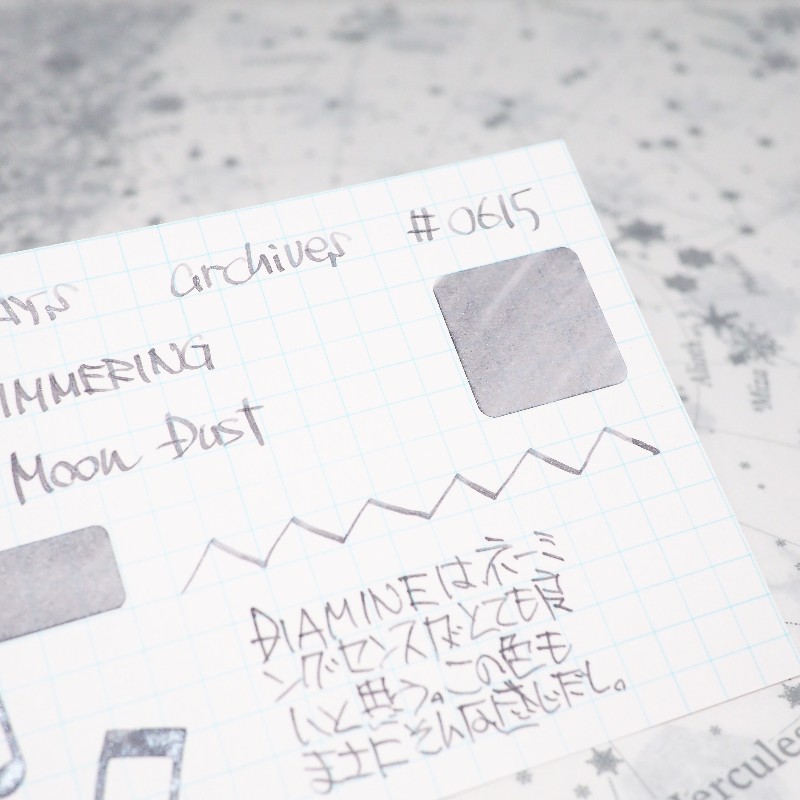 AYS archives #0615
IMMERING
Moon Dust
DIAMINEはネーミ
ングセンスがとても良
いと思う。この色も
まさにそんな感じだし。
Alioth
Mizar
Hercules